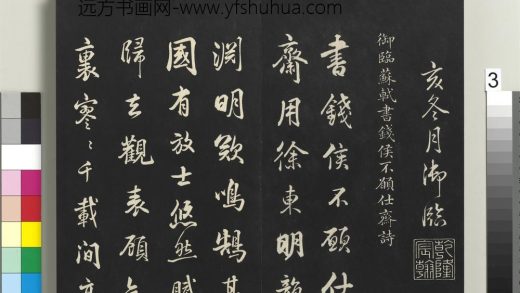 远方书画网-www.yfshuhua.com
3
亥冬月御臨
乾隆宸翰
御臨蘇軾書錢侯不願仕齋詩
書錢侯不願仕
齋用徐東明韵
淵明歎鳴鵠其
國有放士悠然賦
歸去觀表顧
裏寥〻千載間